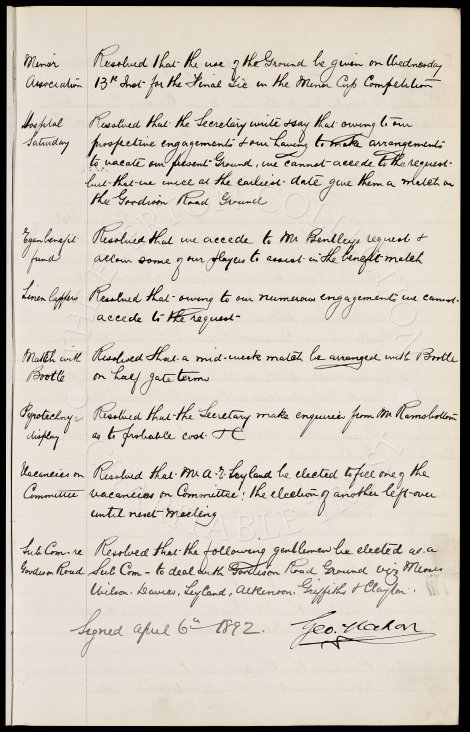 Minor Resolved that the use of the Ground be given on Wednesday
Association 13th Inst for the Final Tie in the Minor Cup Competition
Hospital Resolved that the Secretary write & say that owing to our
Saturday prospective engagements & our having to make arrangements
to vacate our present Ground, we cannot accede to the request
but that we will at the earliest date give them a match on
the Goodison Road Ground
Egan benefit Resolved that we accede to Mr Bentleys request &
fund allow some of our players to assist in the benefit match
Linen Lappers Resolved that owing to our numerous engagements we cannot
accede to the request
Match with Resolved that a mid-week match be arranged with Bootle
Bootle on half gate terms
Pyrotechnic Resolved that the Secretary make enquiries from Mr Ramsbottom
display as to probable cost &c
Vacancies on Resolved that Mr A. E. Leyland be elected to fill one of the
Committee vacancies on Committee: the election of another left over
until next Meeting
Sub Com - re Resolved that the following gentlemen be elected as a
Goodison Road Sub Com - to deal with Goodison Road Ground viz Messrs
Wilson. Davies, Leyland, Atkinson. Griffiths & Clayton.
Signed April 6th 1892. Geo. Mahon